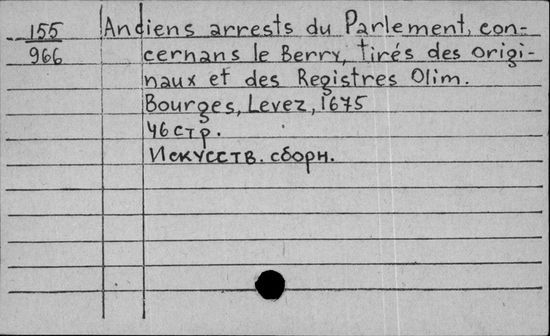 155
966
Anciens arrests du Parlement, con-
cernans le Berry, tirés des origi-
naux et des Registres Olim.
Bourges, Levez, 1675
46 стр.
Искусств. сборн.